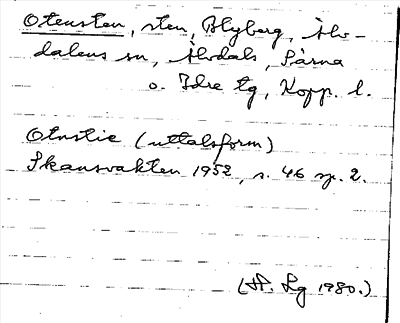 Otensten, sten, Blyberg, Älv-
dalens sn, Älvdals, Särna
o. Idre tg, Kopp. l.
Otnstie (uttalsform)
Skansvakten 1952, s. 46 sp. 2.
(H. Lg 1980.)